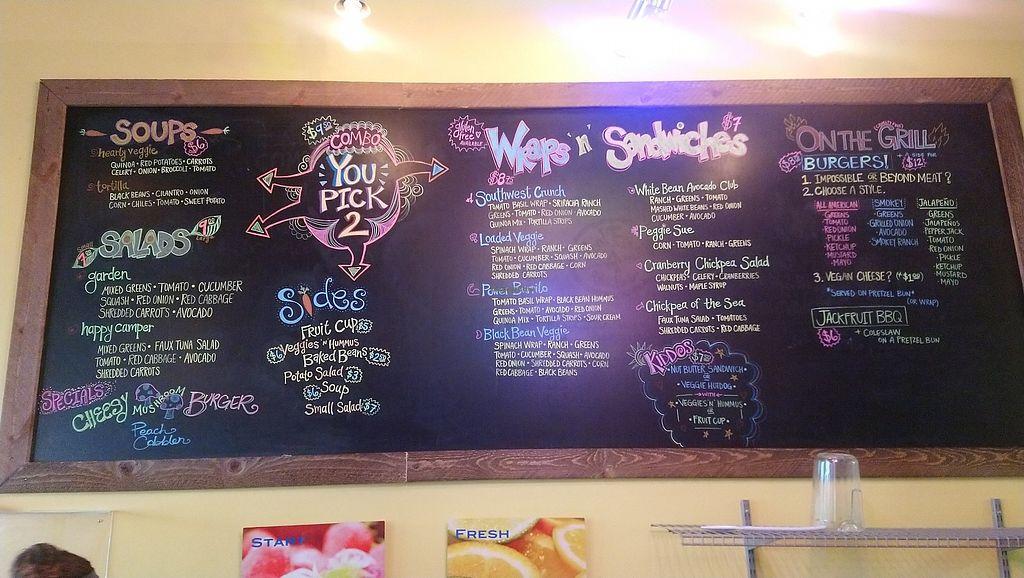 SOUPS $6
hearty veggie
QUINOA • RED POTATOES • CARROTS
CELERY • ONION • BROCCOLI • TOMATO
tortilla
BLACK BEANS • CILANTRO • ONION
CORN • CHILES • TOMATO • SWEET POTATO
SALADS
small $7
large
garden
MIXED GREENS • TOMATO • CUCUMBER
SQUASH • RED ONION • RED CABBAGE
SHREDDED CARROTS • AVOCADO
happy camper
MIXED GREENS • FAUX TUNA SALAD
TOMATO • RED CABBAGE • AVOCADO
SHREDDED CARROTS
SPECIALS
CHEESY MUSHROOM BURGER
Peach
Cobbler
COMBO
YOU
PICK
2
Sides
FRUIT CUP
VEGGIES 'N' HUMMUS
BAKED BEANS
POTATO SALAD $3
$6 SOUP
SMALL SALAD $7
gluten
free
AVAILABLE
Wraps 'n' Sandwiches $7
Southwest Crunch
TOMATO BASIL WRAP • SRIRACHA RANCH
GREENS • TOMATO • RED ONION • AVOCADO
QUINOA MIX • TORTILLA STRIPS
Loaded Veggie
SPINACH WRAP • RANCH • GREENS
TOMATO • CUCUMBER • SQUASH • AVOCADO
RED ONION • RED CABBAGE • CORN
SHREDDED CARROTS
TOMATO BASIL WRAP • BLACK BEAN HUMMUS
GREENS • TOMATO • AVOCADO • RED ONION
QUINOA MIX • TORTILLA STRIPS • SOUR CREAM
Black Bean Veggie
SPINACH WRAP • RANCH • GREENS
TOMATO • CUCUMBER • SQUASH • AVOCADO
RED ONION • SHREDDED CARROTS • CORN
RED CABBAGE • BLACK BEANS
White Bean Avocado Club
RANCH • GREENS • TOMATO
MASHED WHITE BEANS • RED ONION
CUCUMBER • AVOCADO
Peggie Sue
CORN • TOMATO • RANCH • GREENS
Cranberry Chickpea Salad
CHICKPEAS • CELERY • CRANBERRIES
WALNUTS • MAPLE SYRUP
Chickpea of the Sea
FAUX TUNA SALAD • TOMATOES
SHREDDED CARROTS • RED CABBAGE
KIDDOS
NUT BUTTER SANDWICH
OR
VEGGIE HOTDOG
WITH
VEGGIES 'N' HUMMUS
OR
FRUIT CUP
ON THE GRILL
BURGERS!
1. IMPOSSIBLE OR BEYOND MEAT?
2. CHOOSE A STYLE.
ALL AMERICAN
GREENS
TOMATO
RED ONION
PICKLE
KETCHUP
MUSTARD
MAYO
SMOKEY
GREENS
GRILLED ONION
AVOCADO
SMOKEY RANCH
JALAPEÑO
GREENS
JALAPEÑOS
PEPPERJACK
TOMATO
RED ONION
PICKLE
KETCHUP
MUSTARD
MAYO
3. VEGAN CHEESE?
*SERVED ON PRETZEL BUN*
(OR WRAP)
JACKFRUIT BBQ
$6 + COLESLAW
ON A PRETZEL BUN
START
FRESH